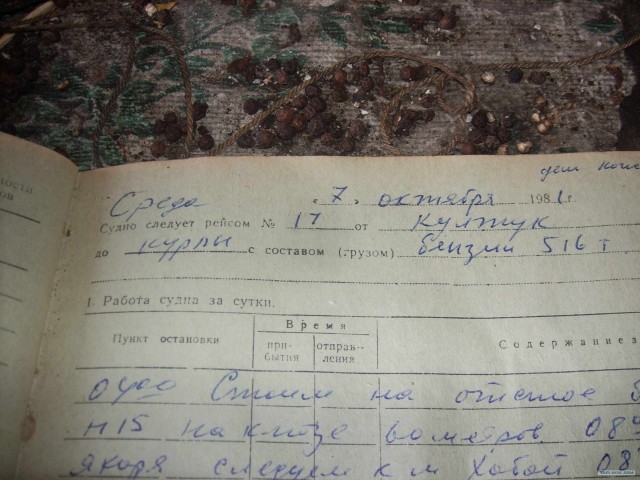 ности
ов
Среда « 7 » октября 1981 г.
Судно следует рейсом № 17 от Култук
до Курлы с составом (грузом) бензин 516 т
1. Работа судна за сутки.
Пункт остановки
Время
при-
бытия
отправ-
ления
Содержание з
0400 Стоим на отстое
на 08
якоря следуем к м Хобой 08